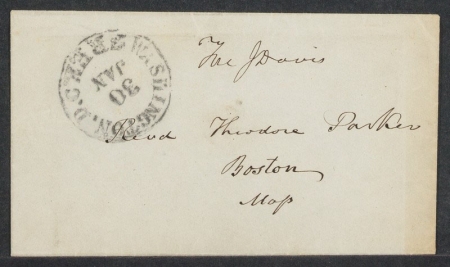 WASHINGTON. D.C.
30
JAN
J Davis
Revd Theodore Parker
Boston
Mass